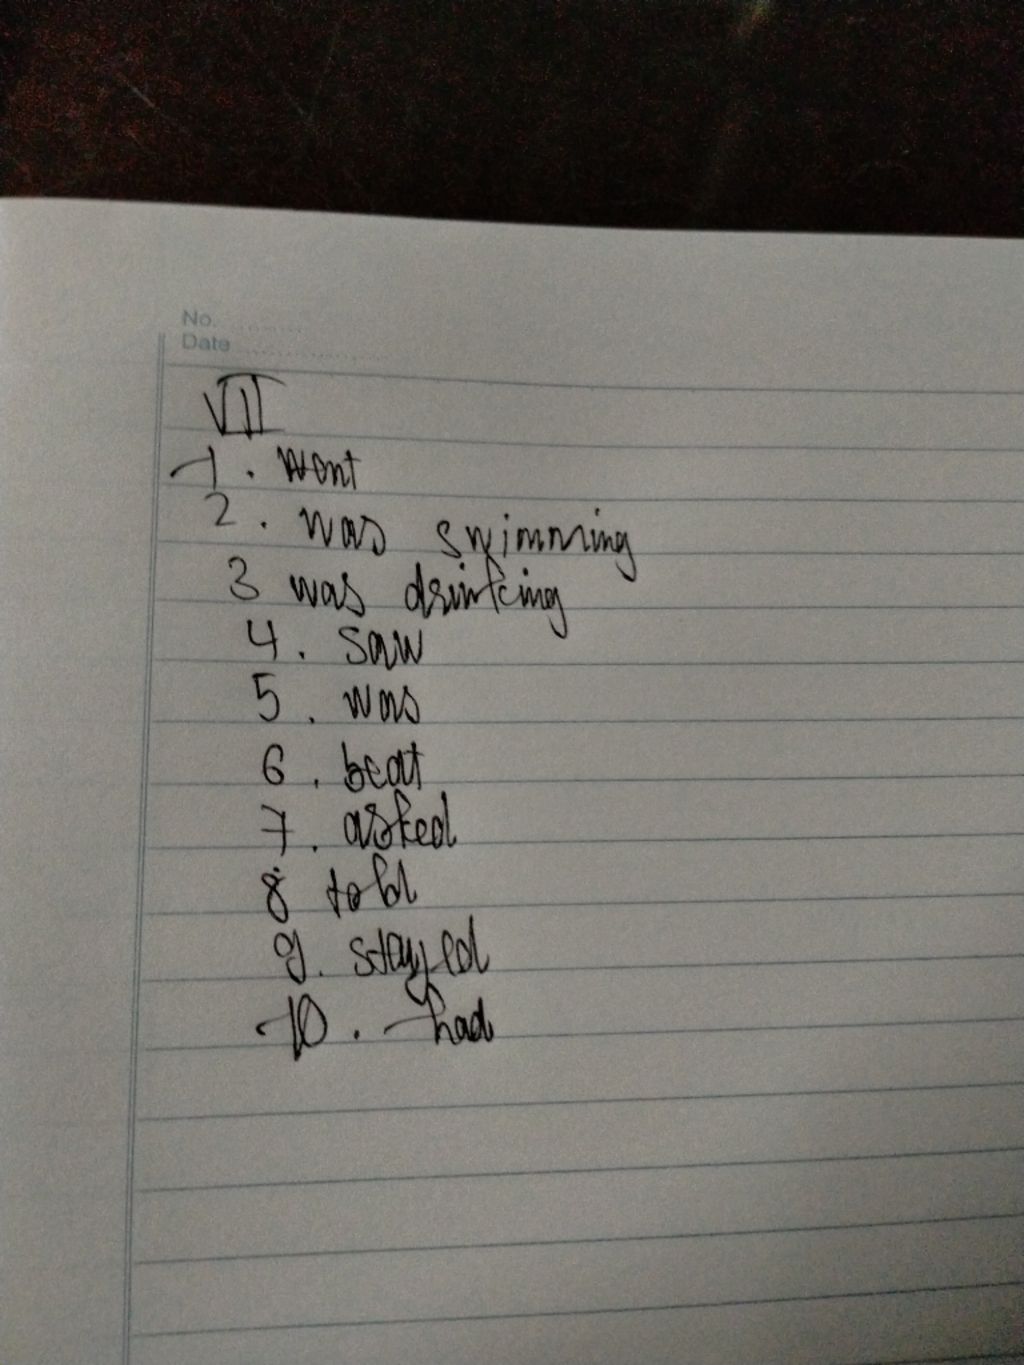 No.
Date
VII
1. went
2. was swimming
3 was drinking
4. saw
5. was
6. beat
7. asked
8 told
9. stayed
10. had